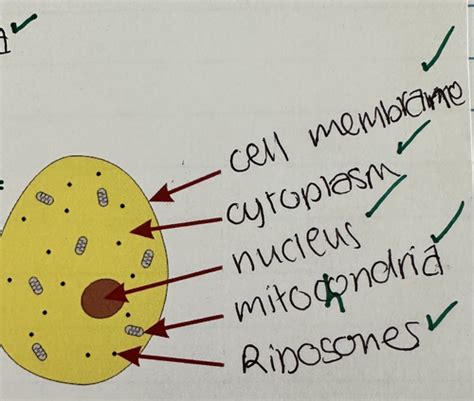 cell membrane
cytoplasm
nucleus
mitochondria
Ribosomes